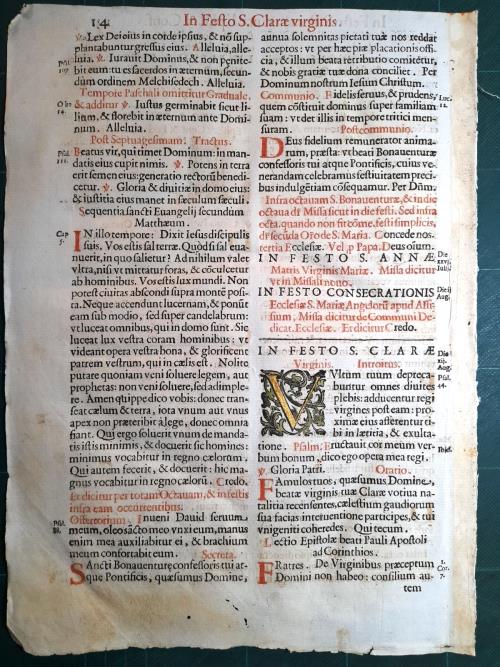 14
In Festo S. Claræ virginis.
℣. Lex Dei eius in corde ipsius, & nō sup-
plantabuntur gressus eius. Alleluia, alle-
luia. ℣. Iurauit Dominus, & non pęnite-
bit eum: tu es sacerdos in æternum, secun-
dum ordinem Melchisedech. Alleluia.
Tempore Paschali omittitur Graduale.
& additur ℣. Iustus germinabit sicut li-
lium, & florebit in æternum ante Domi-
num. Alleluia.
Post Septuagesimam: Tractus.
Beatus vir, qui timet Dominum: in man-
datis eius cupit nimis. ℣. Potens in terra
erit semen eius: generatio rectorū benedi-
cetur. ℣. Gloria & diuitiæ in domo eius:
& iustitia eius manet in sæculum sæculi.
Sequentia sancti Euangelij secundum
Matthæum.
Cap
5.
IN illo tempore: Dixit Iesus discipulis
suis. Vos estis sal terræ. Quòd si sal eua-
nuerit, in quo salietur? Ad nihilum valet
vltra, nisi vt mittatur foras, & cōculcetur
ab hominibus. Vos estis lux mundi. Non
potest ciuitas abscondi supra monté posi-
ta. Neque accendunt lucernam, & ponūt
eam sub modio, sed super candelabrum:
vt luceat omnibus, qui in domo sunt. Sic
luceat lux vestra coram hominibus: vt
videant opera vestra bona, & glorificent
patrem vestrum, qui in cælis est. Nolite
putare quoniam veni soluere legem, aut
prophetas: non veni soluere, sed adimple-
re. Amen quippe dico vobis: donec trans-
eat cælum & terra, iota vnum aut vnus
apex non præteribit à lege, donec omnia
fiant. Qui ergo soluerit vnum de manda-
tis istis minimis, & docuerit sic homines:
minimus vocabitur in regno cælorum.
Qui autem fecerit, & docuerit: hic ma-
gnus vocabitur in regno cælorū. Credo.
Et dicitur per totam Octauam, & in festis
infra eam occurrentibus.
Offertorium. Inueni Dauid seruum
meum, oleo sancto meo vnxi eum, manus
enim mea auxiliabitur ei, & brachium
meum confortabit eum. Secreta.
Sancti Bonauenturę confessoris tui at-
que Pontificis, quæsumus Domine,
annua solemnitas pietati tuæ nos reddat
acceptos: vt per hæc piæ placationis offi-
cia, & illum beata retributio comitetur,
& nobis gratiæ tuæ dona conciliet. Per
Dominum nostrum Iesum Christum.
Communio. Fidelis seruus, & prudens,
quem cōstituit dominus super familiam
suam: vt det illis in tempore tritici men-
suram. Postcommunio.
Deus fidelium remunerator anima-
rum, præsta: vt beati Bonauenturæ
confessoris tui atque Pontificis, cuius ve-
nerandam celebramus festiuitatem preci-
bus indulgētiam cōsequamur. Per Dñm.
Infra octauam S. Bonauenturæ, & in die
octaua dr Missa sicut in die festi. Sed infra
octa. quando non fit de fest. simplicis,
dr secūda Oro de S. Maria. Concede nos.
tertia Ecclesiæ. Vel p Papa. Deus oīum.
IN FESTO S. ANNÆ
Matris Virginis Mariæ. Missa dicitur
vt in Missali nouo.
IN FESTO CONSECRATIONIS
Ecclesiæ S. Mariæ Angelorū apud Assi-
sium, Missa dicitur de Communi De-
dicat. Ecclesiæ. Et dicitur Credo.
IN FESTO S. CLARÆ
Virginis. Introitus.
VUltum tuum depreca-
buntur omnes diuites
plebis: adducentur regi
virgines post eam: pro-
ximæ eius afferentur ti-
bi in lætitia, & exulta-
tione. Psalm. Eructauit cor meum ver-
bum bonum, dico ego opera mea regi.
℣. Gloria Patri. Oratio.
Famulos tuos, quæsumus Domine,
beatæ virginis tuæ Claræ votiua na-
talitia recensentes, cælestium gaudiorum
sua facias interuentione participes, & tui
vnigeniti coheredes. Qui tecum.
Lectio Epistolæ beati Pauli Apostoli
ad Corinthios.
1.
Cor.
7.
Fratres. De Virginibus præceptum
Domini non habeo: consilium au-
tem